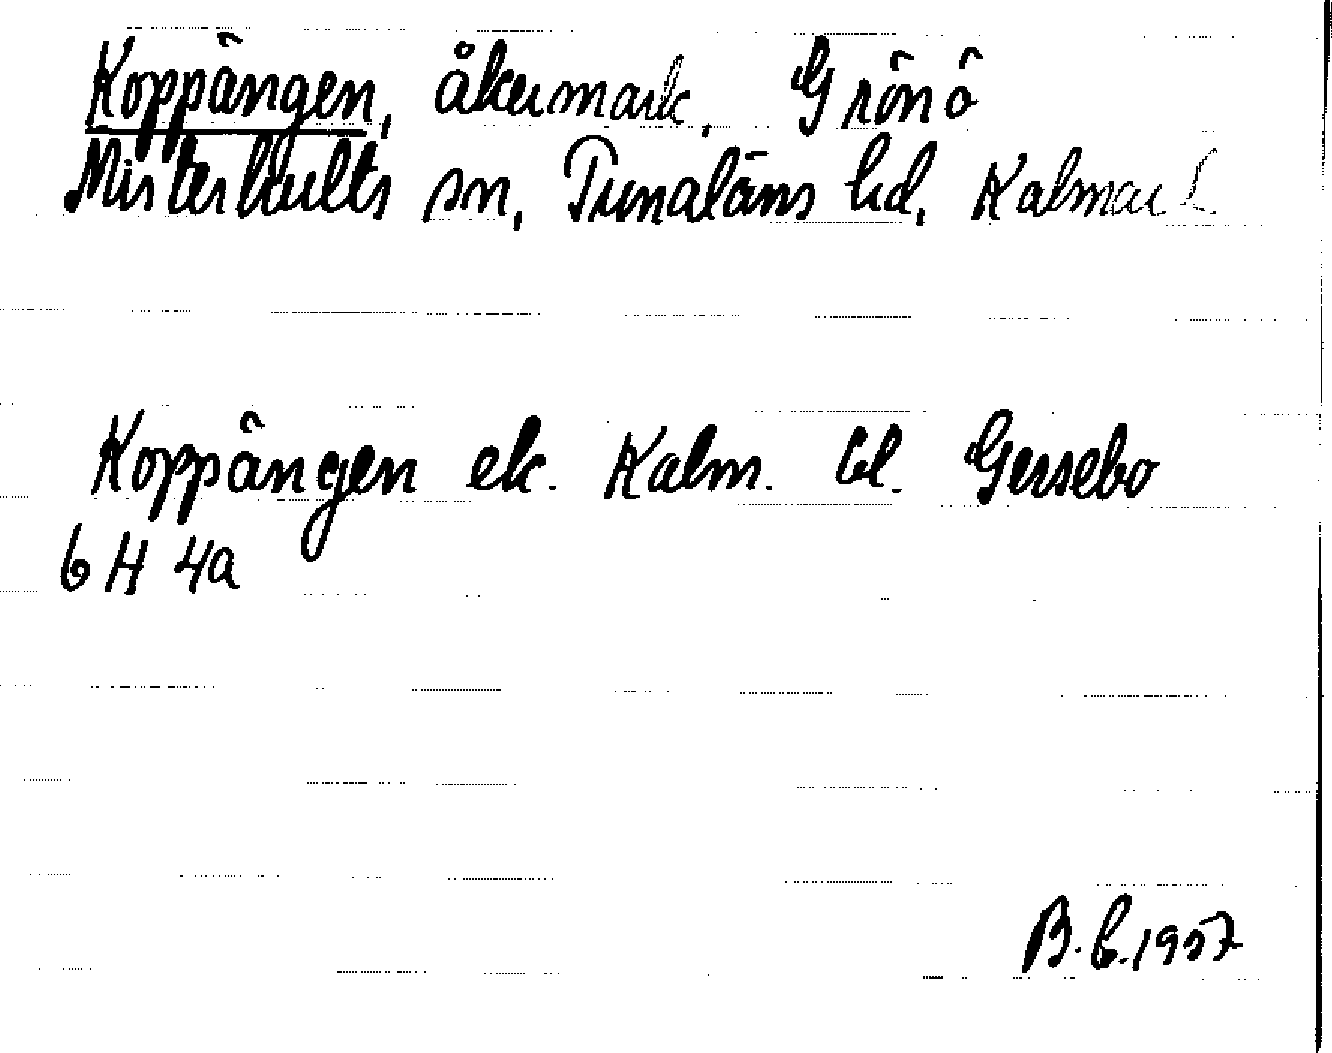 Koppängen, åkermark, Grönö
Misterhults sn, Tunaläns hd, Kalmar L
Koppängen ek. Kalm. bl. Gersebo
6 H 4a
B.E. 1957